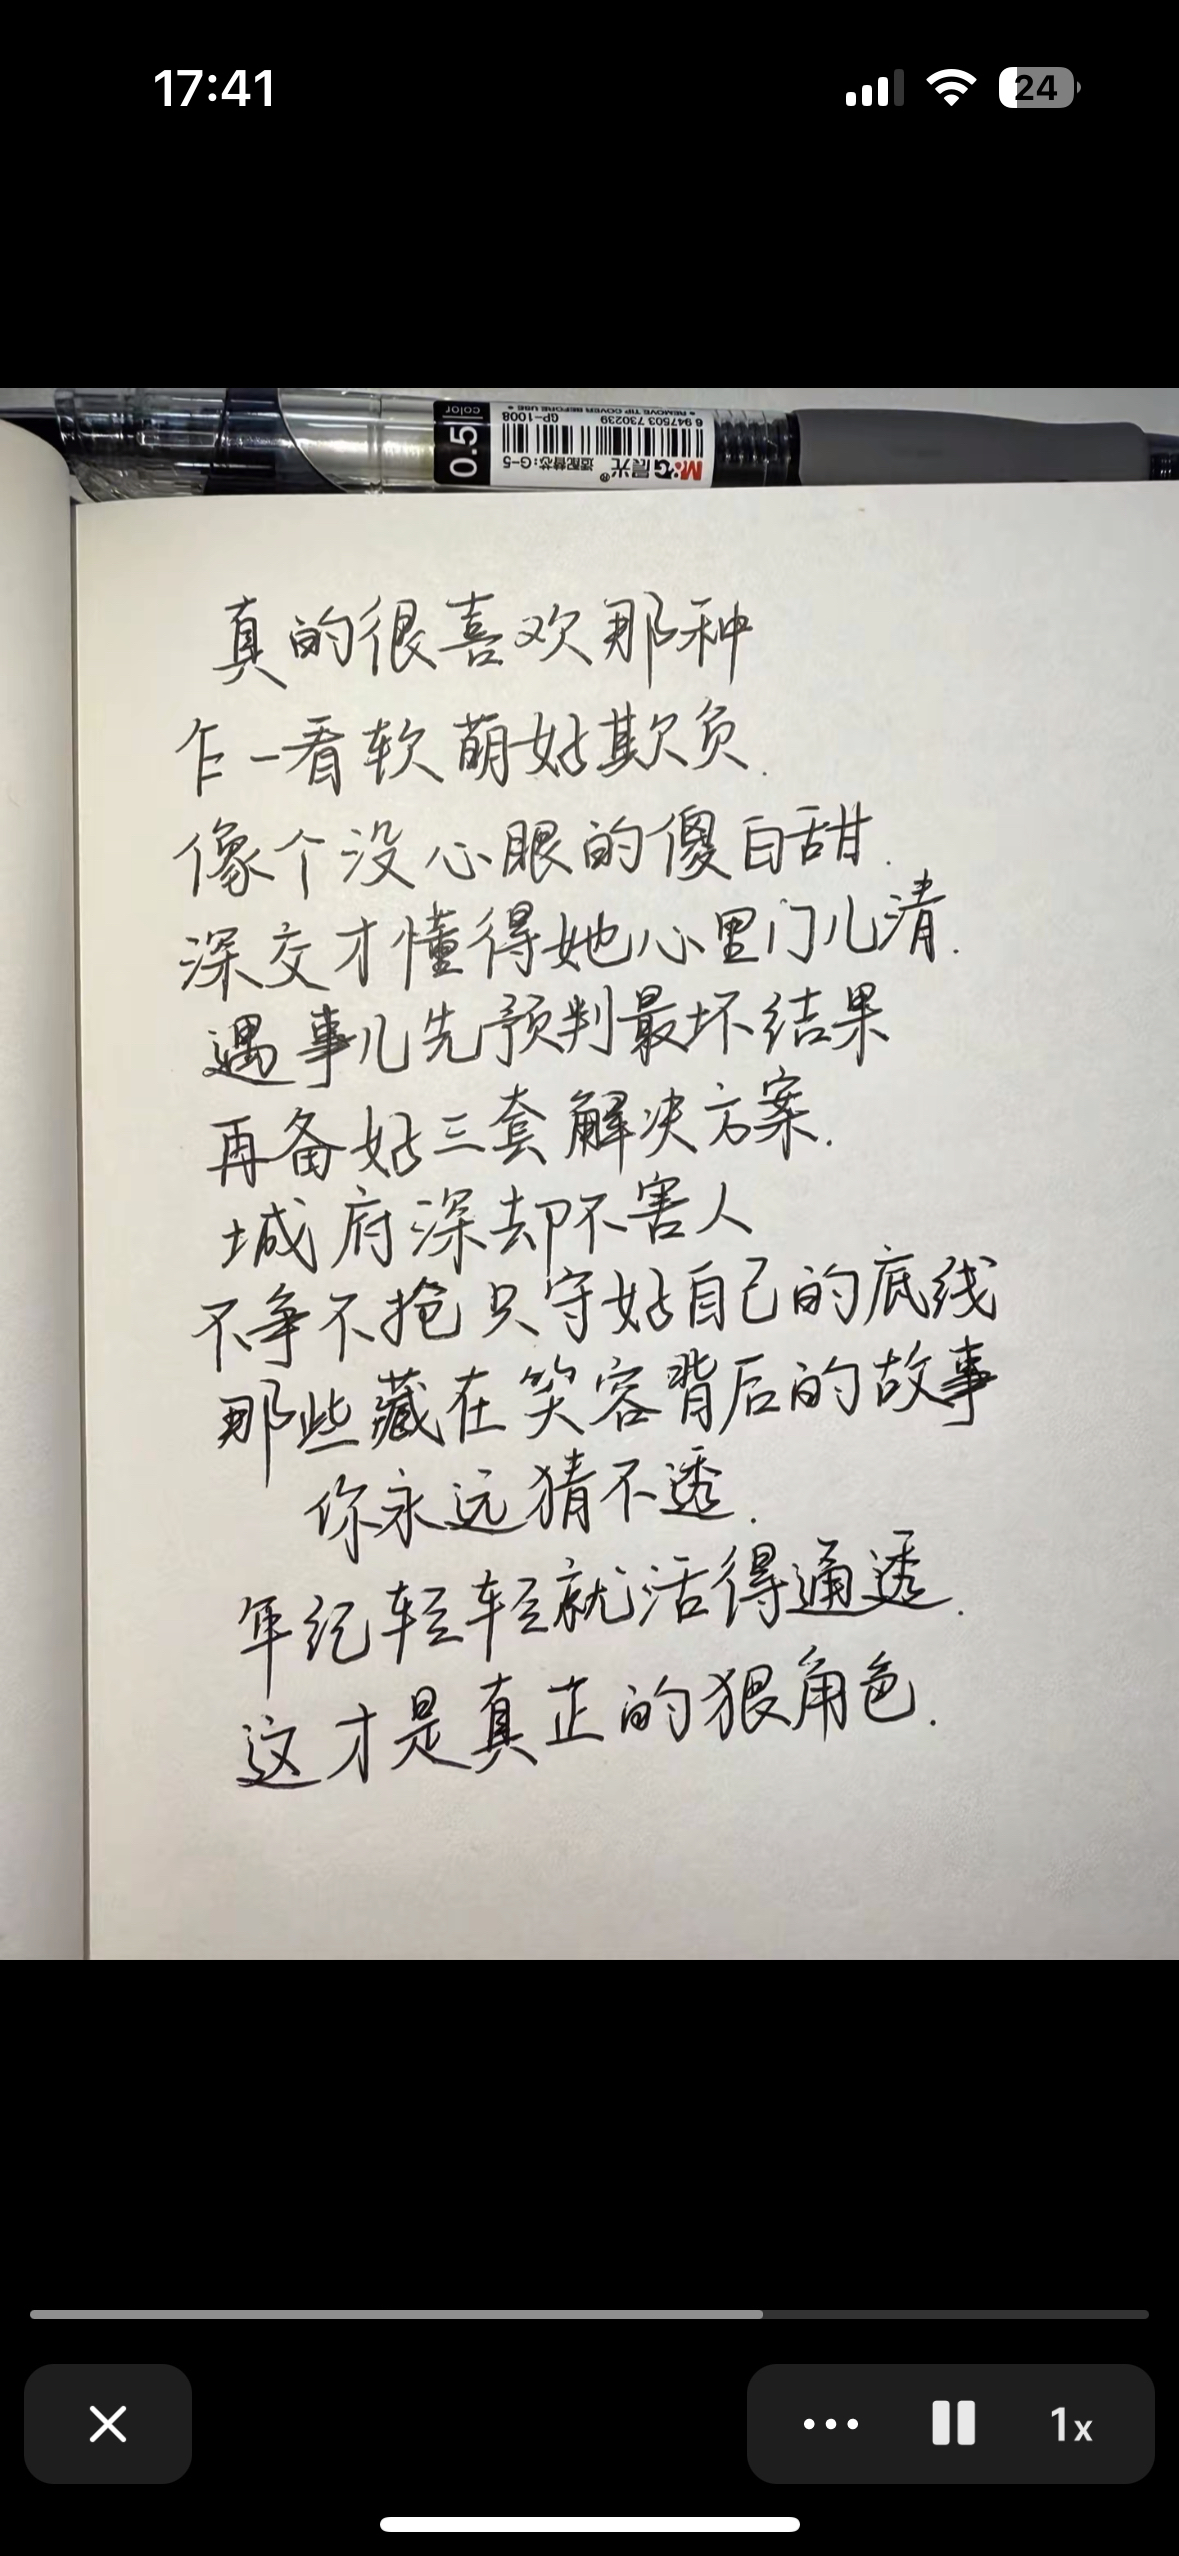 17:41
24
0.5 color
GP-1008
适配替芯:G-5
M&G晨光®
6 947503 730239
• REMOVE TIP COVER BEFORE USE •
真的很喜欢那种
乍一看软萌好欺负.
像个没心眼的傻白甜.
深交才懂得她心里门儿清.
遇事儿先预判最坏结果
再备好三套解决方案.
城府深却不害人
不争不抢只守好自己的底线
那些藏在笑容背后的故事
你永远猜不透.
年纪轻轻就活得通透.
这才是真正的狠角色.
1x